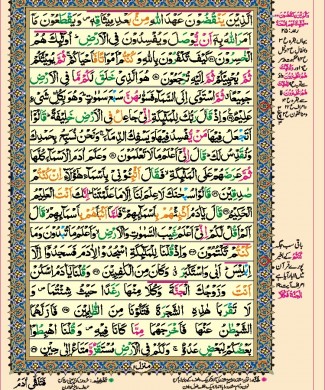 الَّذِيْنَ يَنْقُضُوْنَ عَهْدَ اللّٰهِ مِنْۢ بَعْدِ مِيْثَاقِهٖ ۪ وَيَقْطَعُوْنَ مَاۤ
اَمَرَ اللّٰهُ بِهٖۤ اَنْ يُّوْصَلَ وَيُفْسِدُوْنَ فِى الْاَرْضِ ؕ اُولٰٓئِكَ هُمُ
الْخٰسِرُوْنَ ۞ كَيْفَ تَكْفُرُوْنَ بِاللّٰهِ وَكُنْتُمْ اَمْوَاتًا فَاَحْيَاكُمْ ۚ ثُمَّ يُمِيْتُكُمْ
ثُمَّ يُحْيِيْكُمْ ثُمَّ اِلَيْهِ تُرْجَعُوْنَ ۞ هُوَ الَّذِىْ خَلَقَ لَكُمْ مَّا فِى الْاَرْضِ
جَمِيْعًا ۗ ثُمَّ اسْتَوٰۤى اِلَى السَّمَآءِ فَسَوّٰىهُنَّ سَبْعَ سَمٰوٰتٍ ؕ وَهُوَ بِكُلِّ شَىْءٍ
عَلِيْمٌ ۞ وَاِذْ قَالَ رَبُّكَ لِلْمَلٰٓئِكَةِ اِنِّىْ جَاعِلٌ فِى الْاَرْضِ خَلِيْفَةً ؕ قَالُوْۤا
اَتَجْعَلُ فِيْهَا مَنْ يُّفْسِدُ فِيْهَا وَيَسْفِكُ الدِّمَآءَ ۚ وَنَحْنُ نُسَبِّحُ بِحَمْدِكَ
وَنُقَدِّسُ لَكَ ؕ قَالَ اِنِّىْۤ اَعْلَمُ مَا لَا تَعْلَمُوْنَ ۞ وَعَلَّمَ اٰدَمَ الْاَسْمَآءَ كُلَّهَا
ثُمَّ عَرَضَهُمْ عَلَى الْمَلٰٓئِكَةِ ۙ فَقَالَ اَنْۢبِـُٔوْنِىْ بِاَسْمَآءِ هٰٓؤُلَآءِ اِنْ كُنْتُمْ
صٰدِقِيْنَ ۞ قَالُوْا سُبْحٰنَكَ لَا عِلْمَ لَنَاۤ اِلَّا مَا عَلَّمْتَنَا ؕ اِنَّكَ اَنْتَ الْعَلِيْمُ
الْحَكِيْمُ ۞ قَالَ يٰۤاٰدَمُ اَنْۢبِئْهُمْ بِاَسْمَآئِهِمْ ۚ فَلَمَّاۤ اَنْۢبَاَهُمْ بِاَسْمَآئِهِمْ ۙ قَالَ
اَلَمْ اَقُلْ لَّكُمْ اِنِّىْۤ اَعْلَمُ غَيْبَ السَّمٰوٰتِ وَالْاَرْضِ ۙ وَاَعْلَمُ مَا تُبْدُوْنَ وَمَا
كُنْتُمْ تَكْتُمُوْنَ ۞ وَاِذْ قُلْنَا لِلْمَلٰٓئِكَةِ اسْجُدُوْا لِاٰدَمَ فَسَجَدُوْۤا اِلَّاۤ
اِبْلِيْسَ ؕ اَبٰى وَاسْتَكْبَرَ ۗ وَكَانَ مِنَ الْكٰفِرِيْنَ ۞ وَقُلْنَا يٰۤاٰدَمُ اسْكُنْ
اَنْتَ وَزَوْجُكَ الْجَنَّةَ وَكُلَا مِنْهَا رَغَدًا حَيْثُ شِئْتُمَا ۪ وَ
لَا تَقْرَبَا هٰذِهِ الشَّجَرَةَ فَتَكُوْنَا مِنَ الظّٰلِمِيْنَ ۞ فَاَزَلَّهُمَا
الشَّيْطٰنُ عَنْهَا فَاَخْرَجَهُمَا مِمَّا كَانَا فِيْهِ ۪ وَقُلْنَا اهْبِطُوْا
بَعْضُكُمْ لِبَعْضٍ عَدُوٌّ ۚ وَلَكُمْ فِى الْاَرْضِ مُسْتَقَرٌّ وَّمَتَاعٌ اِلٰى حِيْنٍ ۞
فَتَلَقّٰۤى اٰدَمُ